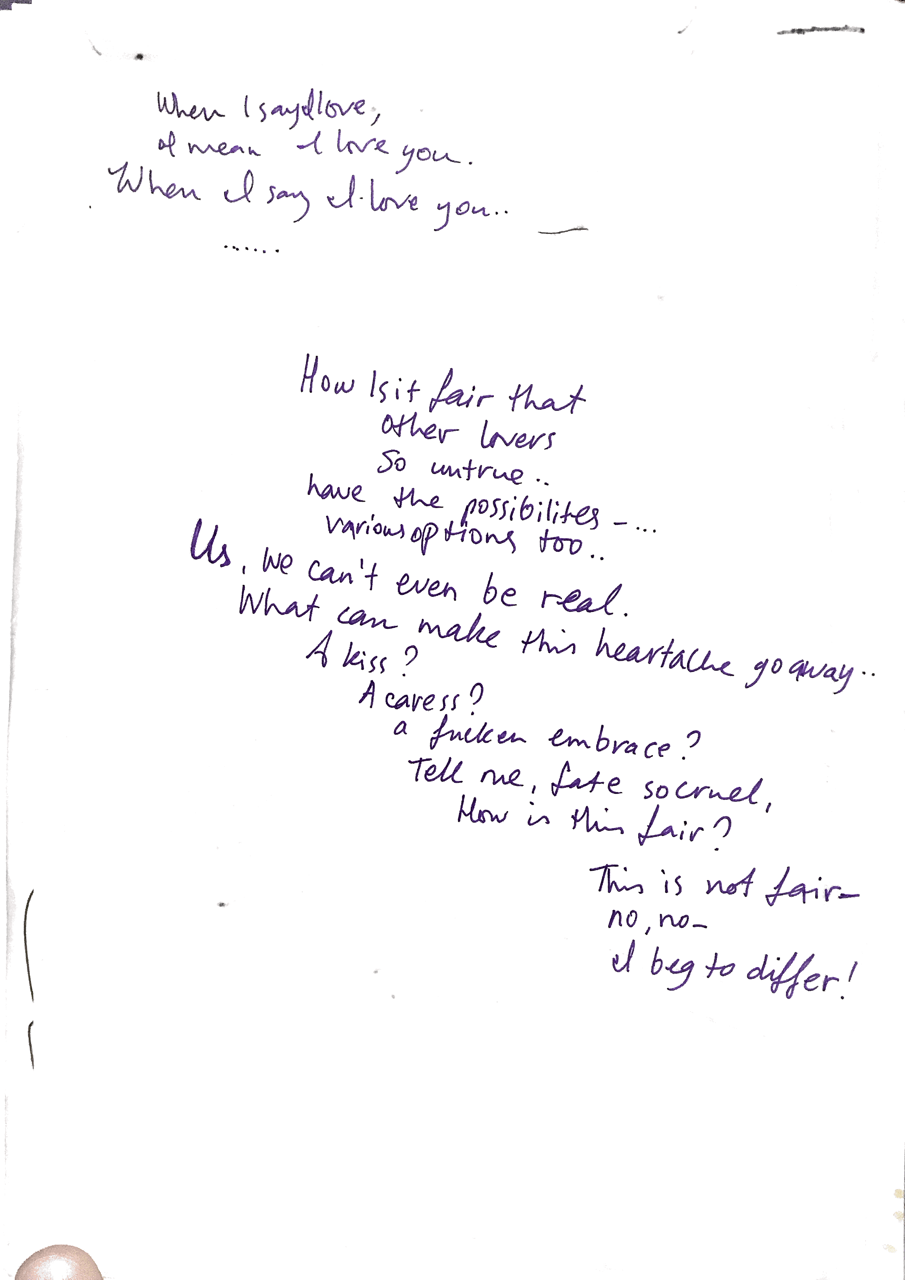 When I say I love,
I mean I love you.
When I say I love you..
......
How Is it fair that
other lovers
So untrue..
have the possibilites -...
various options too..
Us, we can't even be real.
What can make this heartache go away..
A kiss?
A caress?
a fucken embrace?
Tell me, fate so cruel,
How is this fair?
This is not fair-
no, no-
I beg to differ!